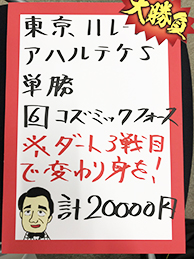 大勝負
東京11レース
アハルテケS
単勝
6 コズミックフォース
※ダート3戦目
で変わり身を!
計20000円